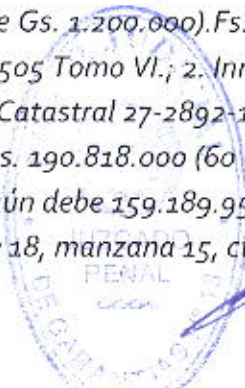 e Gs. 1.200.000).Fs.
505 Tomo VI.; 2. Inm
Catastral 27-2892-1
s. 190.818.000 (60
ún debe 159.189.95
e 18, manzana 15, cu
JUZGADO
PENAL
DE GARANTIAS